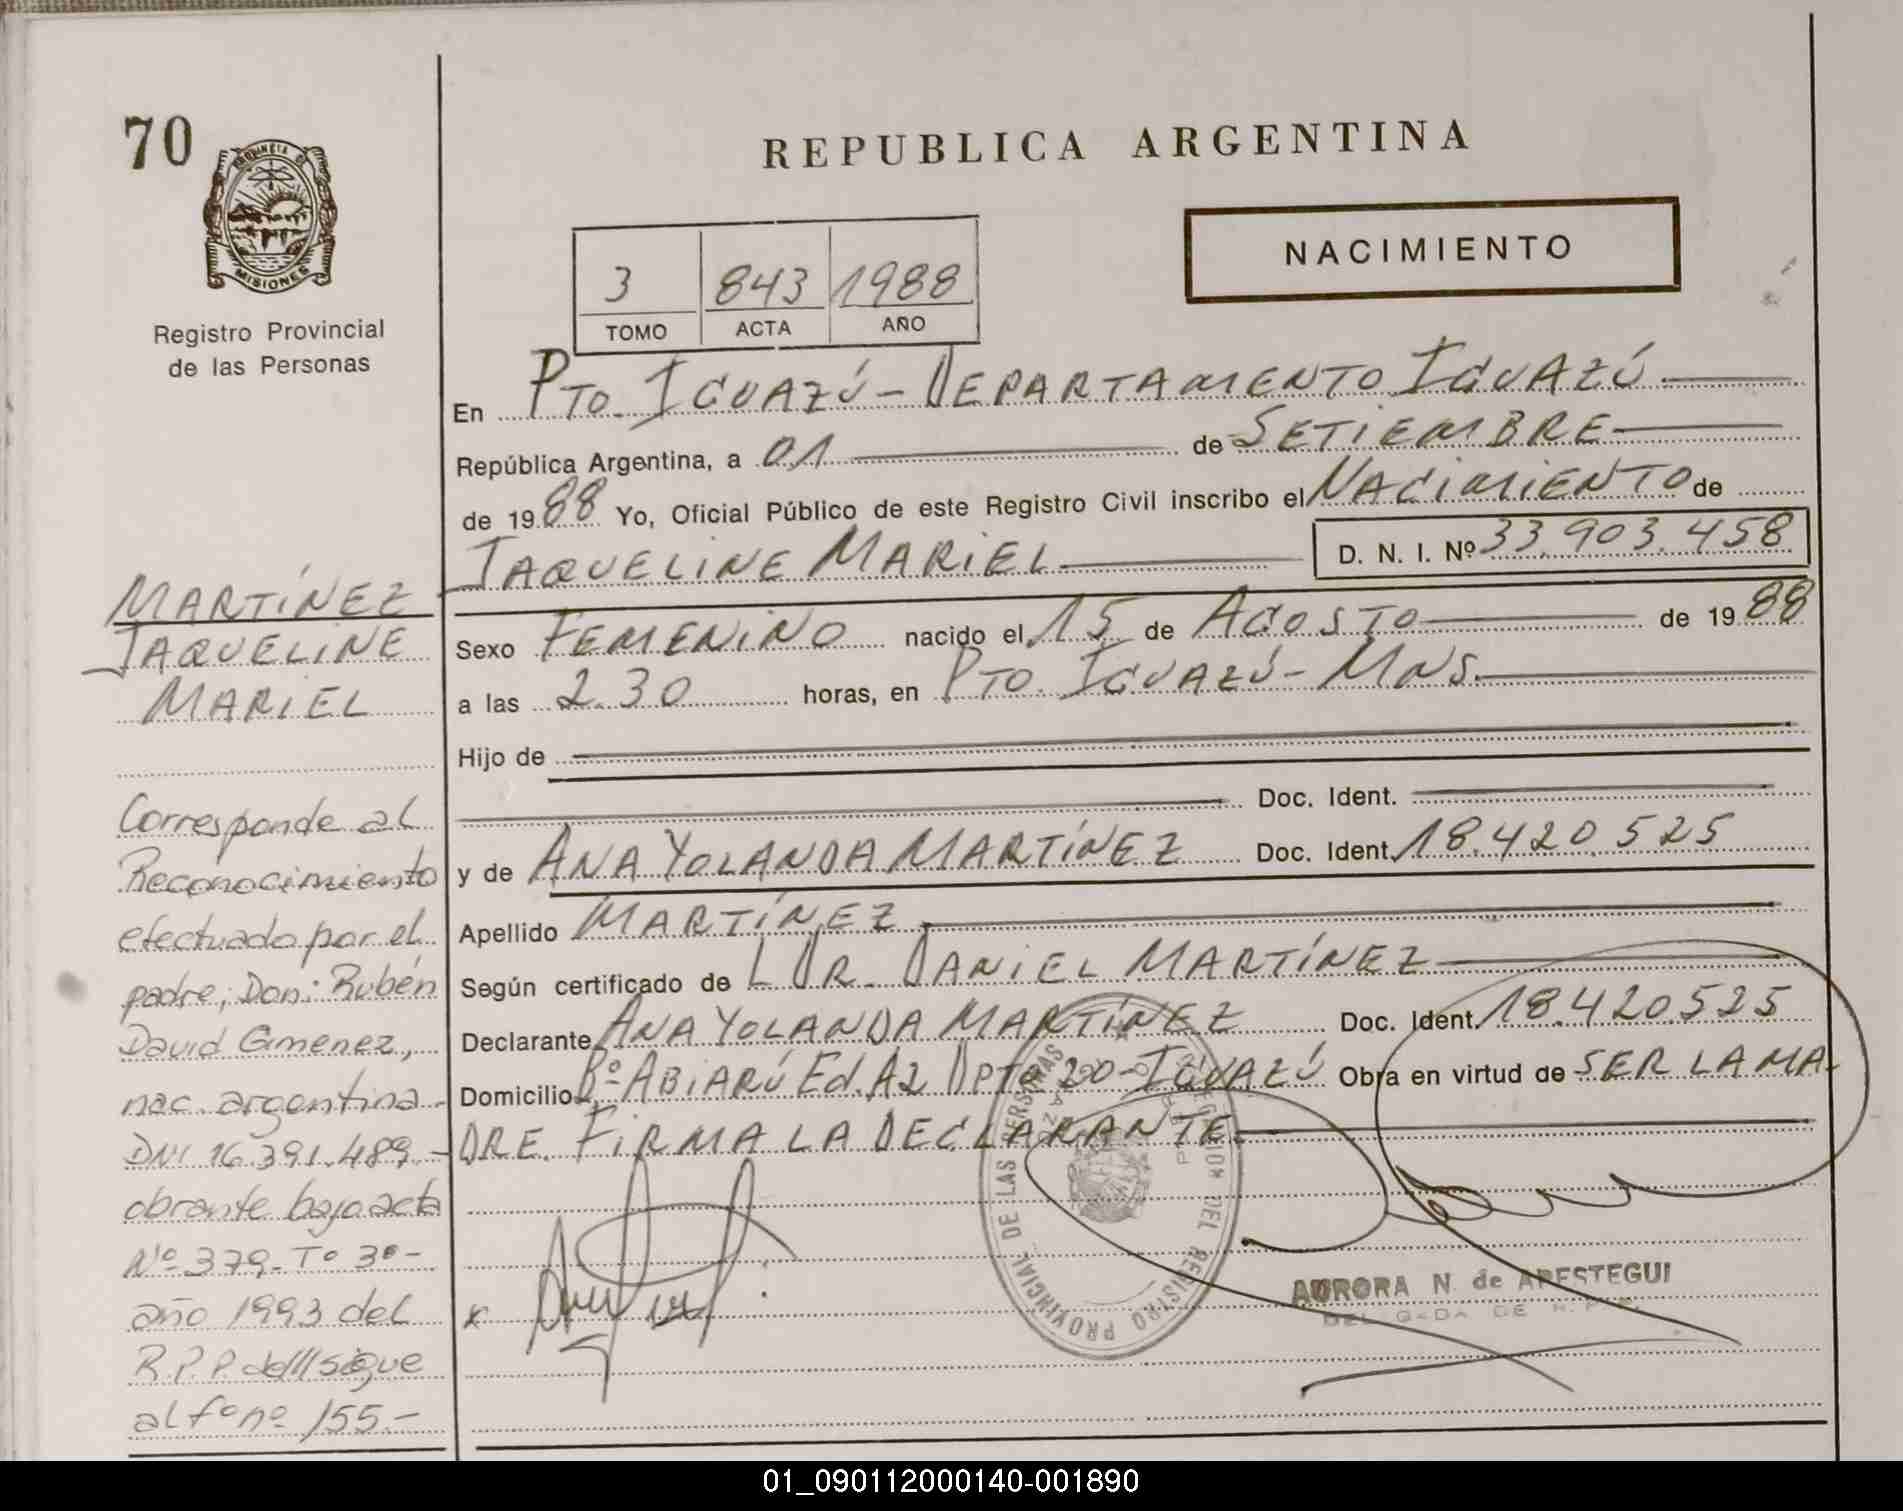 70
PROVINCIA DE
MISIONES
Registro Provincial
de las Personas
REPUBLICA ARGENTINA
NACIMIENTO
3 843 1988
TOMO ACTA AÑO
En PTO. IGUAZÚ - DEPARTAMENTO IGUAZÚ
República Argentina, a 01 de SETIEMBRE
de 1988 Yo, Oficial Público de este Registro Civil inscribo el NACIMIENTO de
JAQUELINE MARIEL D. N. I. Nº 33.903.458
Sexo FEMENINO nacido el 15 de AGOSTO de 1988
a las 2.30 horas, en PTO. IGUAZÚ - MNS.
Hijo de
Doc. Ident.
y de ANA YOLANDA MARTÍNEZ Doc. Ident. 18.420.525
Apellido MARTÍNEZ
Según certificado de L DR. DANIEL MARTÍNEZ
Declarante ANA YOLANDA MARTÍNEZ Doc. Ident. 18.420.525
Domicilio Bº ABIARÚ Ed. A2 DPTO 20 - IGUAZÚ Obra en virtud de SER LA MA-
DRE. FIRMA LA DECLARANTE.
MARTÍNEZ
JAQUELINE
MARIEL
Corresponde al
Reconocimiento
efectuado por el
padre, Don: Rubén
David Gimenez,
nac. argentina-
DNI 16.391.489,-
obrante bajo acta
Nº 379- Tº 3º-
año 1993 del
R.P.P. dell sigue
al fº nº 155.-
x
REGISTRO PROVINCIAL DE LAS PERSONAS
AURORA N. de ARESTEGUI
01_090112000140-001890